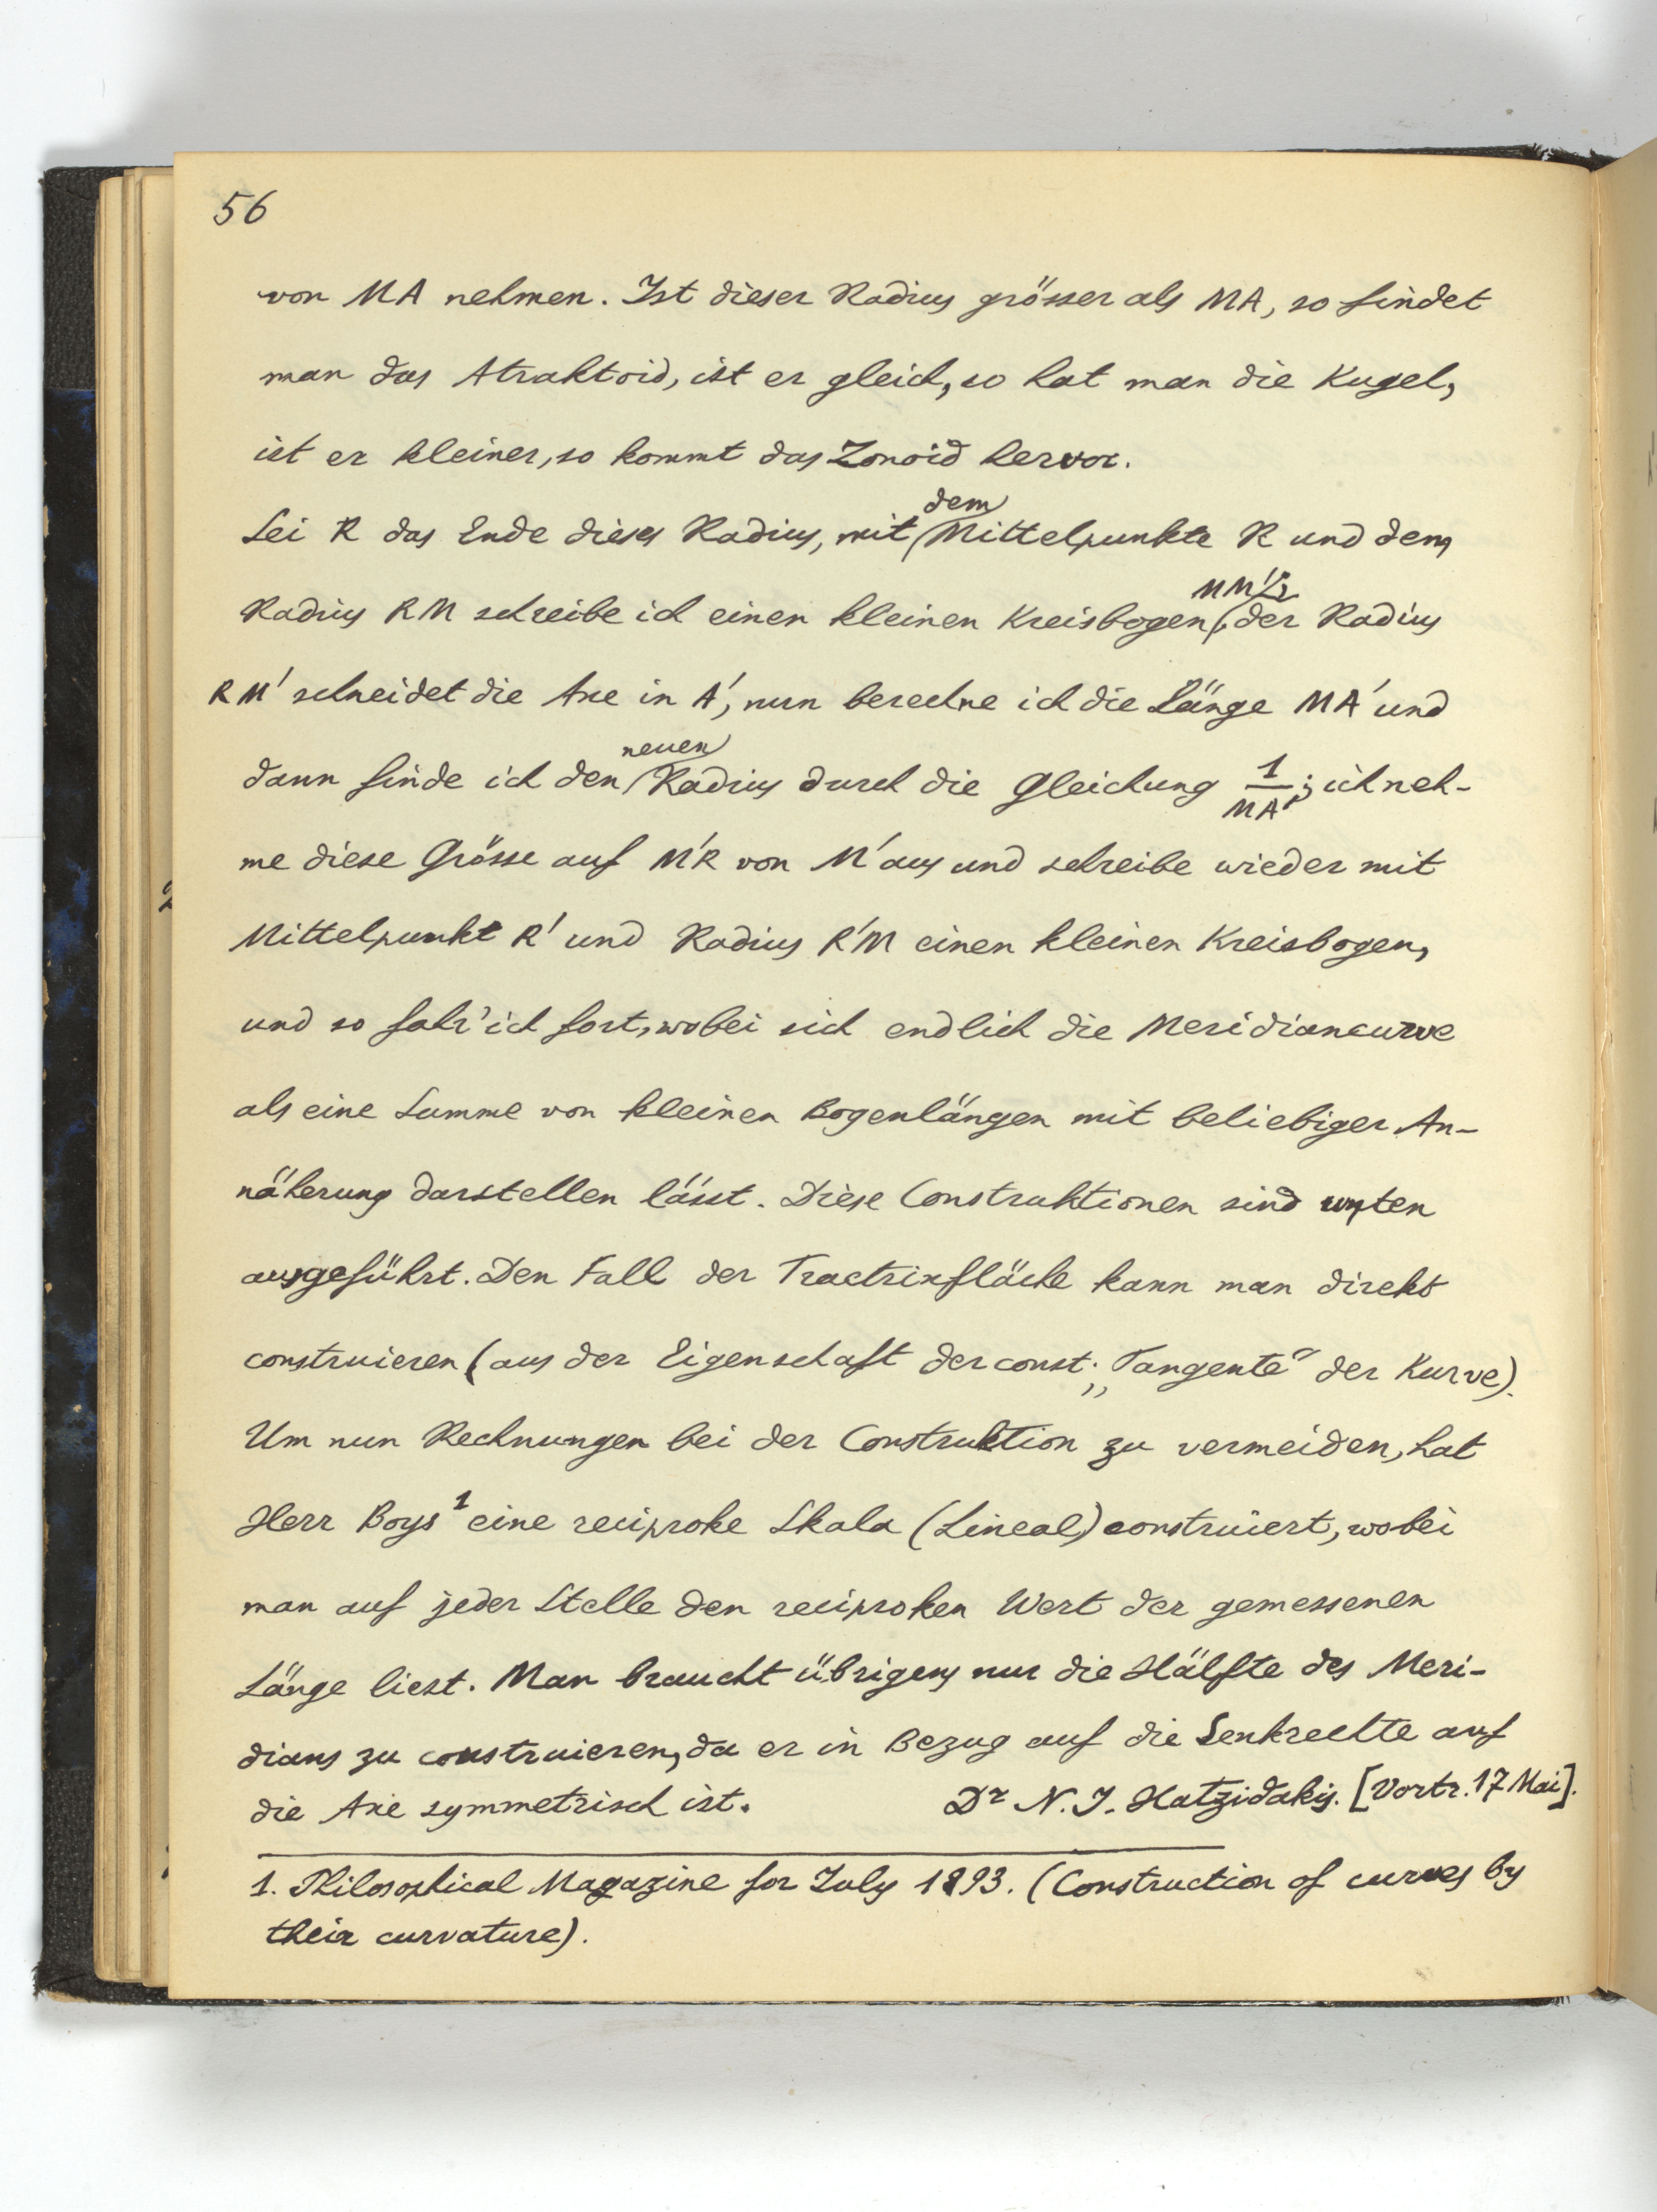 56
von MA nehmen. Ist dieser Radius grösser als MA, so findet
man das Atraktoid, ist er gleich, so hat man die Kugel,
ist er kleiner, so kommt das Zonoid hervor.
dem
Sei R das Ende dieses Radius, mit Mittelpunkte R und dem
MM';
Radius RM schreibe ich einen kleinen Kreisbogen, der Radius
RM' schneidet die Axe in A', nun berechne ich die Länge MA' und
neuen
dann finde ich den Radius durch die Gleichung 1/MA'; ich neh-
me diese Grösse auf M'R von M' aus und schreibe wieder mit
Mittelpunkt R' und Radius R'M einen kleinen Kreisbogen,
und so fahr' ich fort, wobei sich endlich die Meridiancurve
als eine Summe von kleinen Bogenlängen mit beliebiger An-
näherung darstellen lässt. Diese Construktionen sind unten
ausgeführt. Den Fall der Tractrixfläche kann man direkt
construieren (aus der Eigenschaft der const. „Tangente“ der Kurve).
Um nun Rechnungen bei der Construktion zu vermeiden, hat
Herr Boys 1 eine reciproke Skala (Lineal) construiert, wobei
man auf jeder Stelle den reciproken Wert der gemessenen
Länge liest. Man braucht übrigens nur die Hälfte des Meri-
dians zu construieren, da er in Bezug auf die Senkrechte auf
die Axe symmetrisch ist. Dr N. J. Hatzidakis. [Vortr. 17 Mai].
1. Philosophical Magazine for July 1893. (Construction of curves by
their curvature).